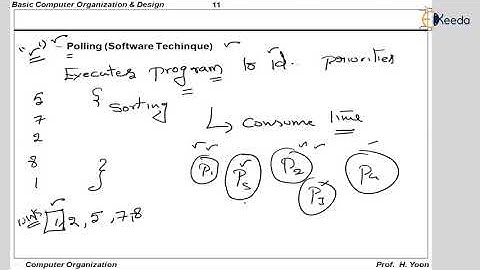 Basic Computer Organization & Design 11
Ekeeda
"r" 1) – Polling (Software Techinque)
Executes program to id. poiorities
5 } sorting
7 ↳ consume time
2
8
1
P1 P5 P2 P3 P4
1, 2, 5, 7, 8
Computer Organization Prof. H. Yoon